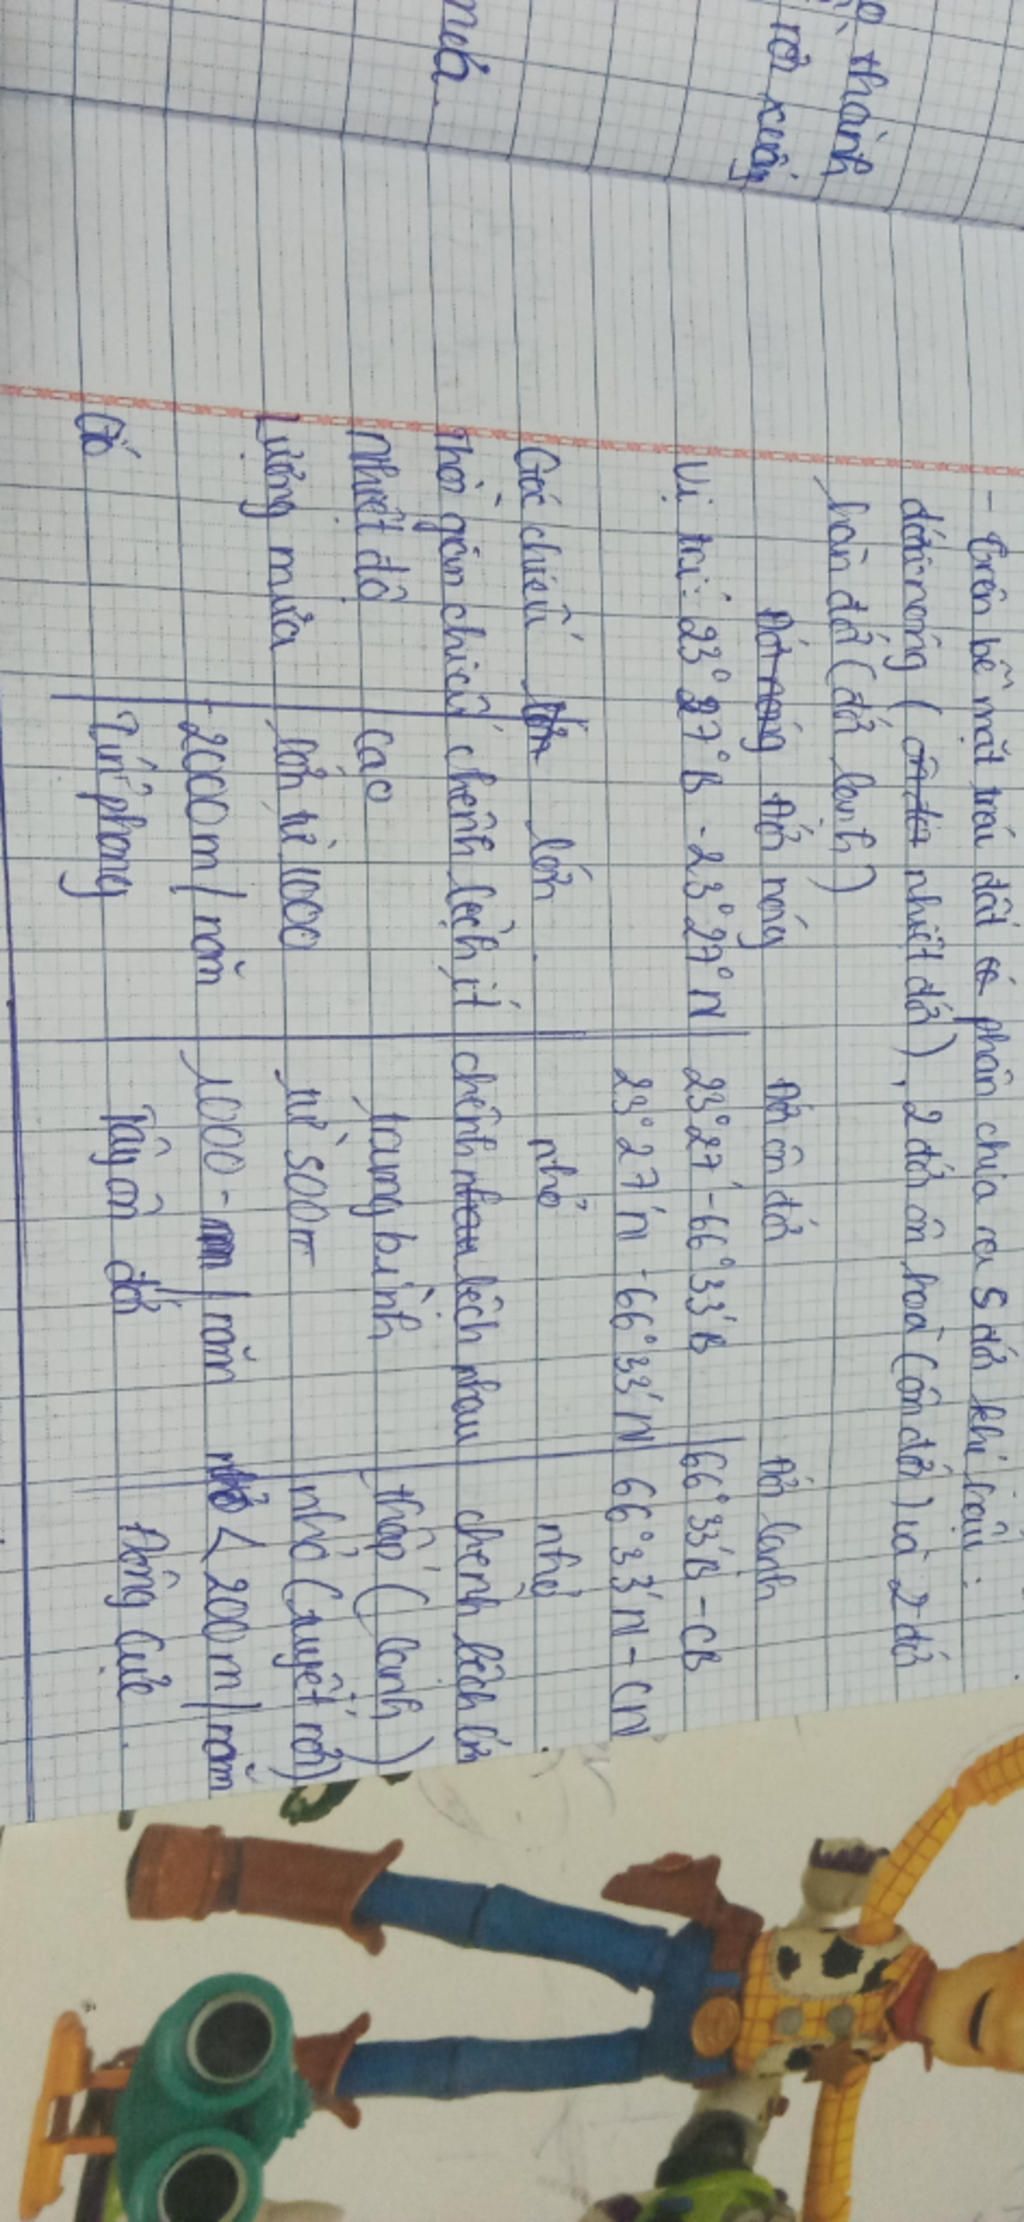 thành
rơi xuống
nữa.
- Trên bề mặt trái đất có phân chia ra 5 đới khí hậu:
đới nóng (nhiệt đới), 2 đới ôn hoà (ôn đới) và 2 đới
hàn đới (đới lạnh)
Đới nóng Đới nóng Đới ôn đới Đới lạnh
Vị trí: 23°27°B - 23°27°N 23°27'-66°33'B 66°33'B-CB
23°27'N-66°33'N 66°33'N-CN
Góc chiếu lớn lớn. nhỏ nhỏ
Thời gian chiếu chênh lệch ít chênh nhau lệch nhau chênh lệch lớn
Nhiệt độ Cao trung bình thấp (lạnh)
Lượng mưa lớn từ 1000 từ 500m nhỏ (tuyết rơi)
-2000m/năm 1000-mm/năm nhỏ < 200m/năm
Gió Tín phong Tây ôn đới Đông Cực.